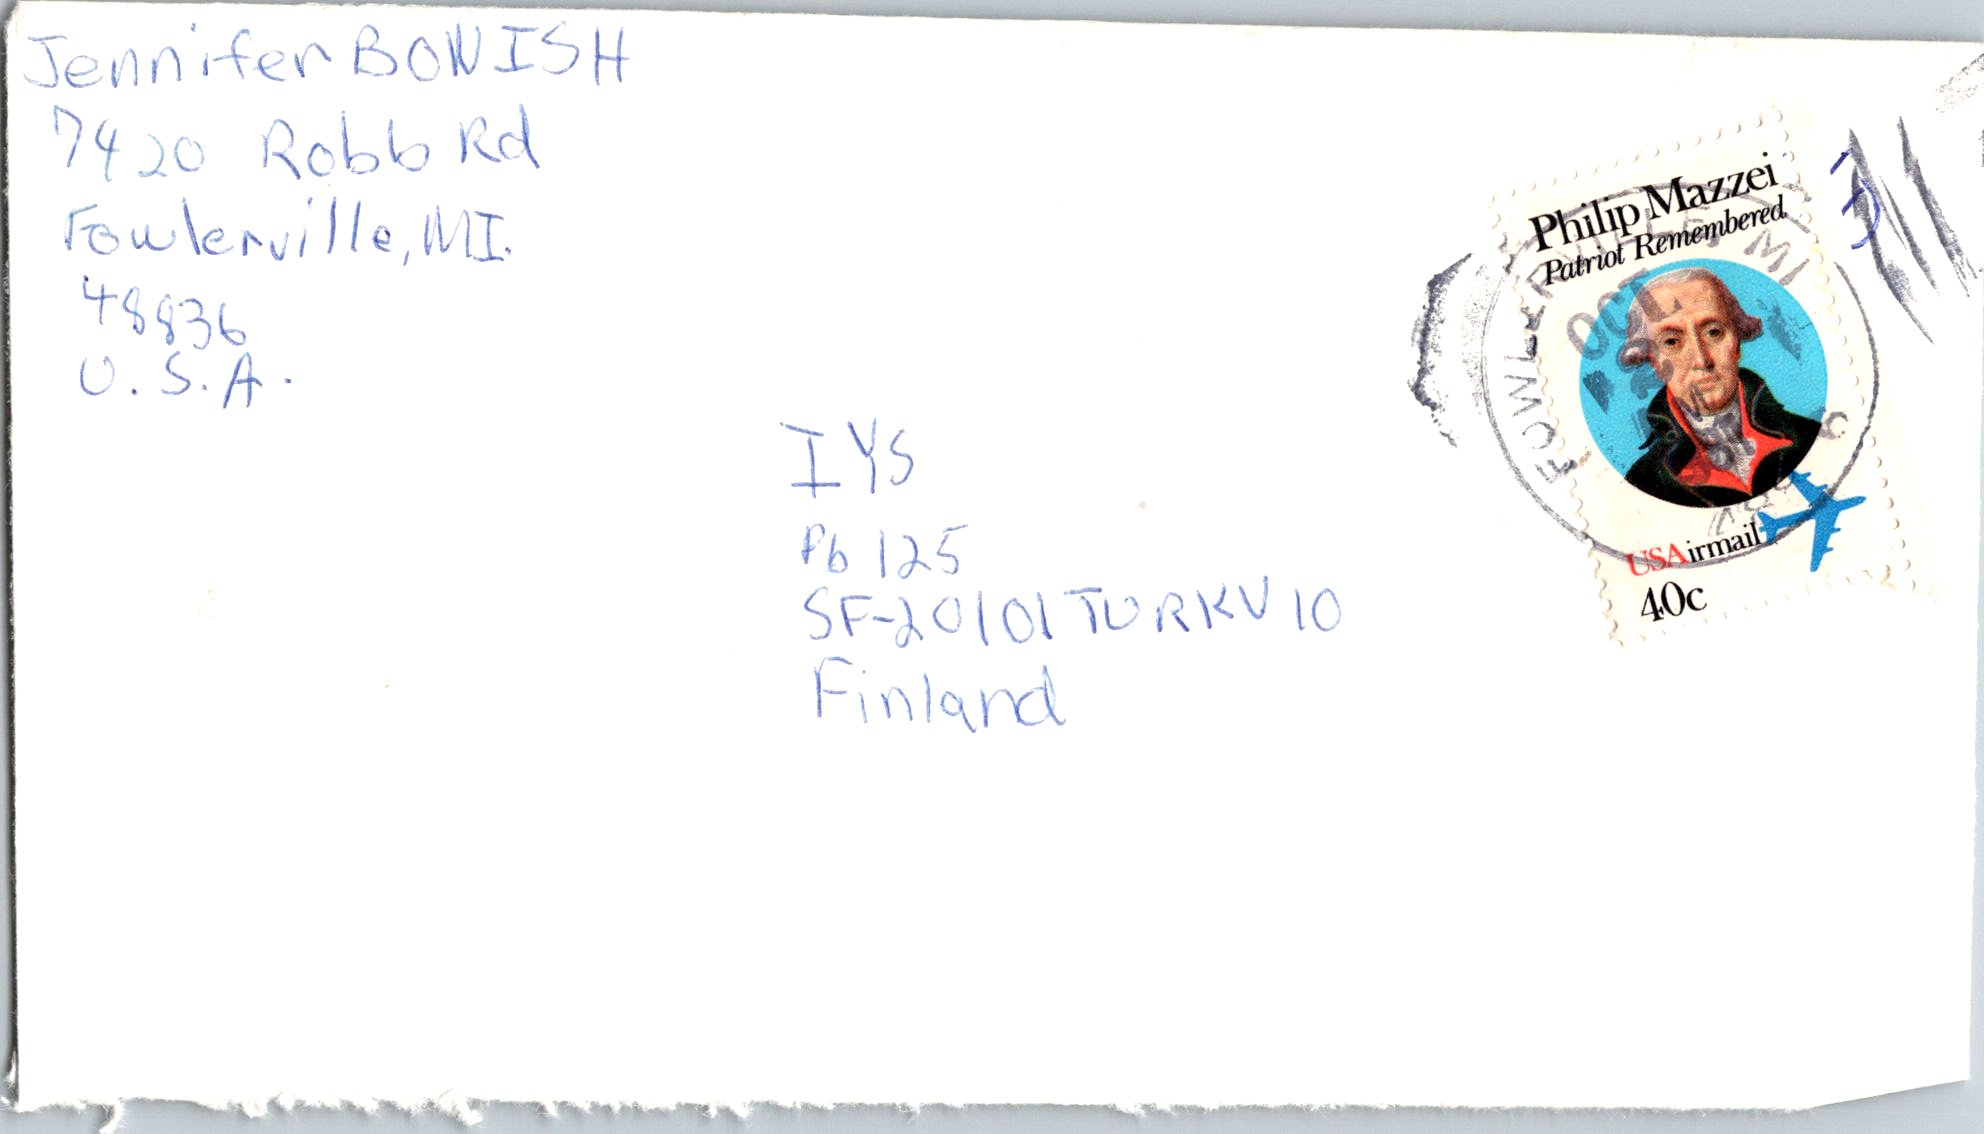 Jennifer BONISH
7420 Robb Rd
Fowlerville, MI.
48836
U.S.A.
IYS
Pb 125
SF-20101 TURKU 10
Finland
Philip Mazzei
Patriot Remembered
USAirmail
40c
FOWLERVILLE, MI
OCT